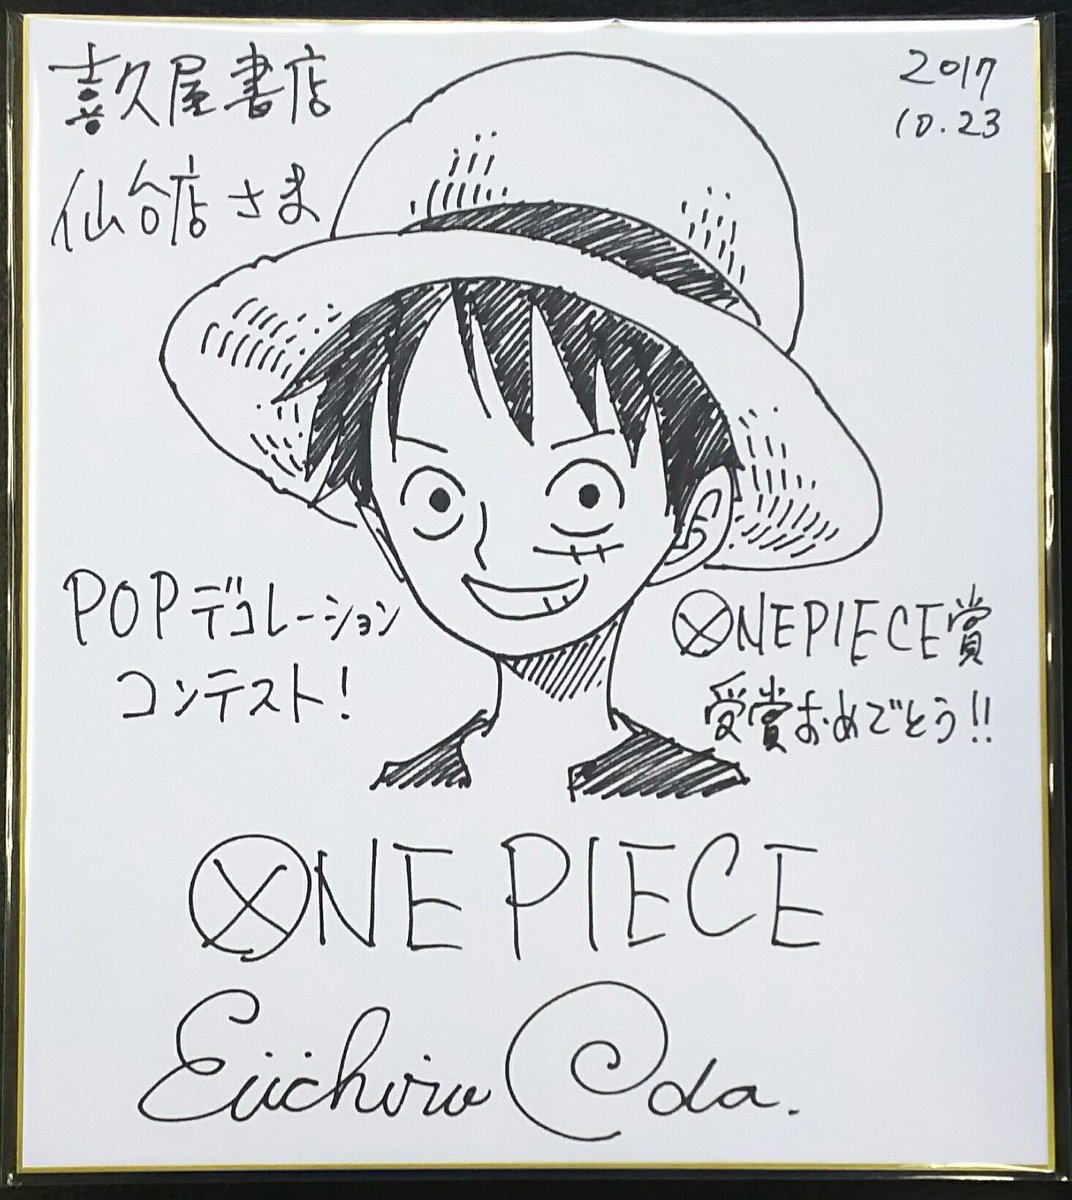 喜久屋書店
仙台店さま
2017
10.23
POPデコレーション
コンテスト!
ONEPIECE賞
受賞おめでとう!!
ONE PIECE
Eiichiro Oda.